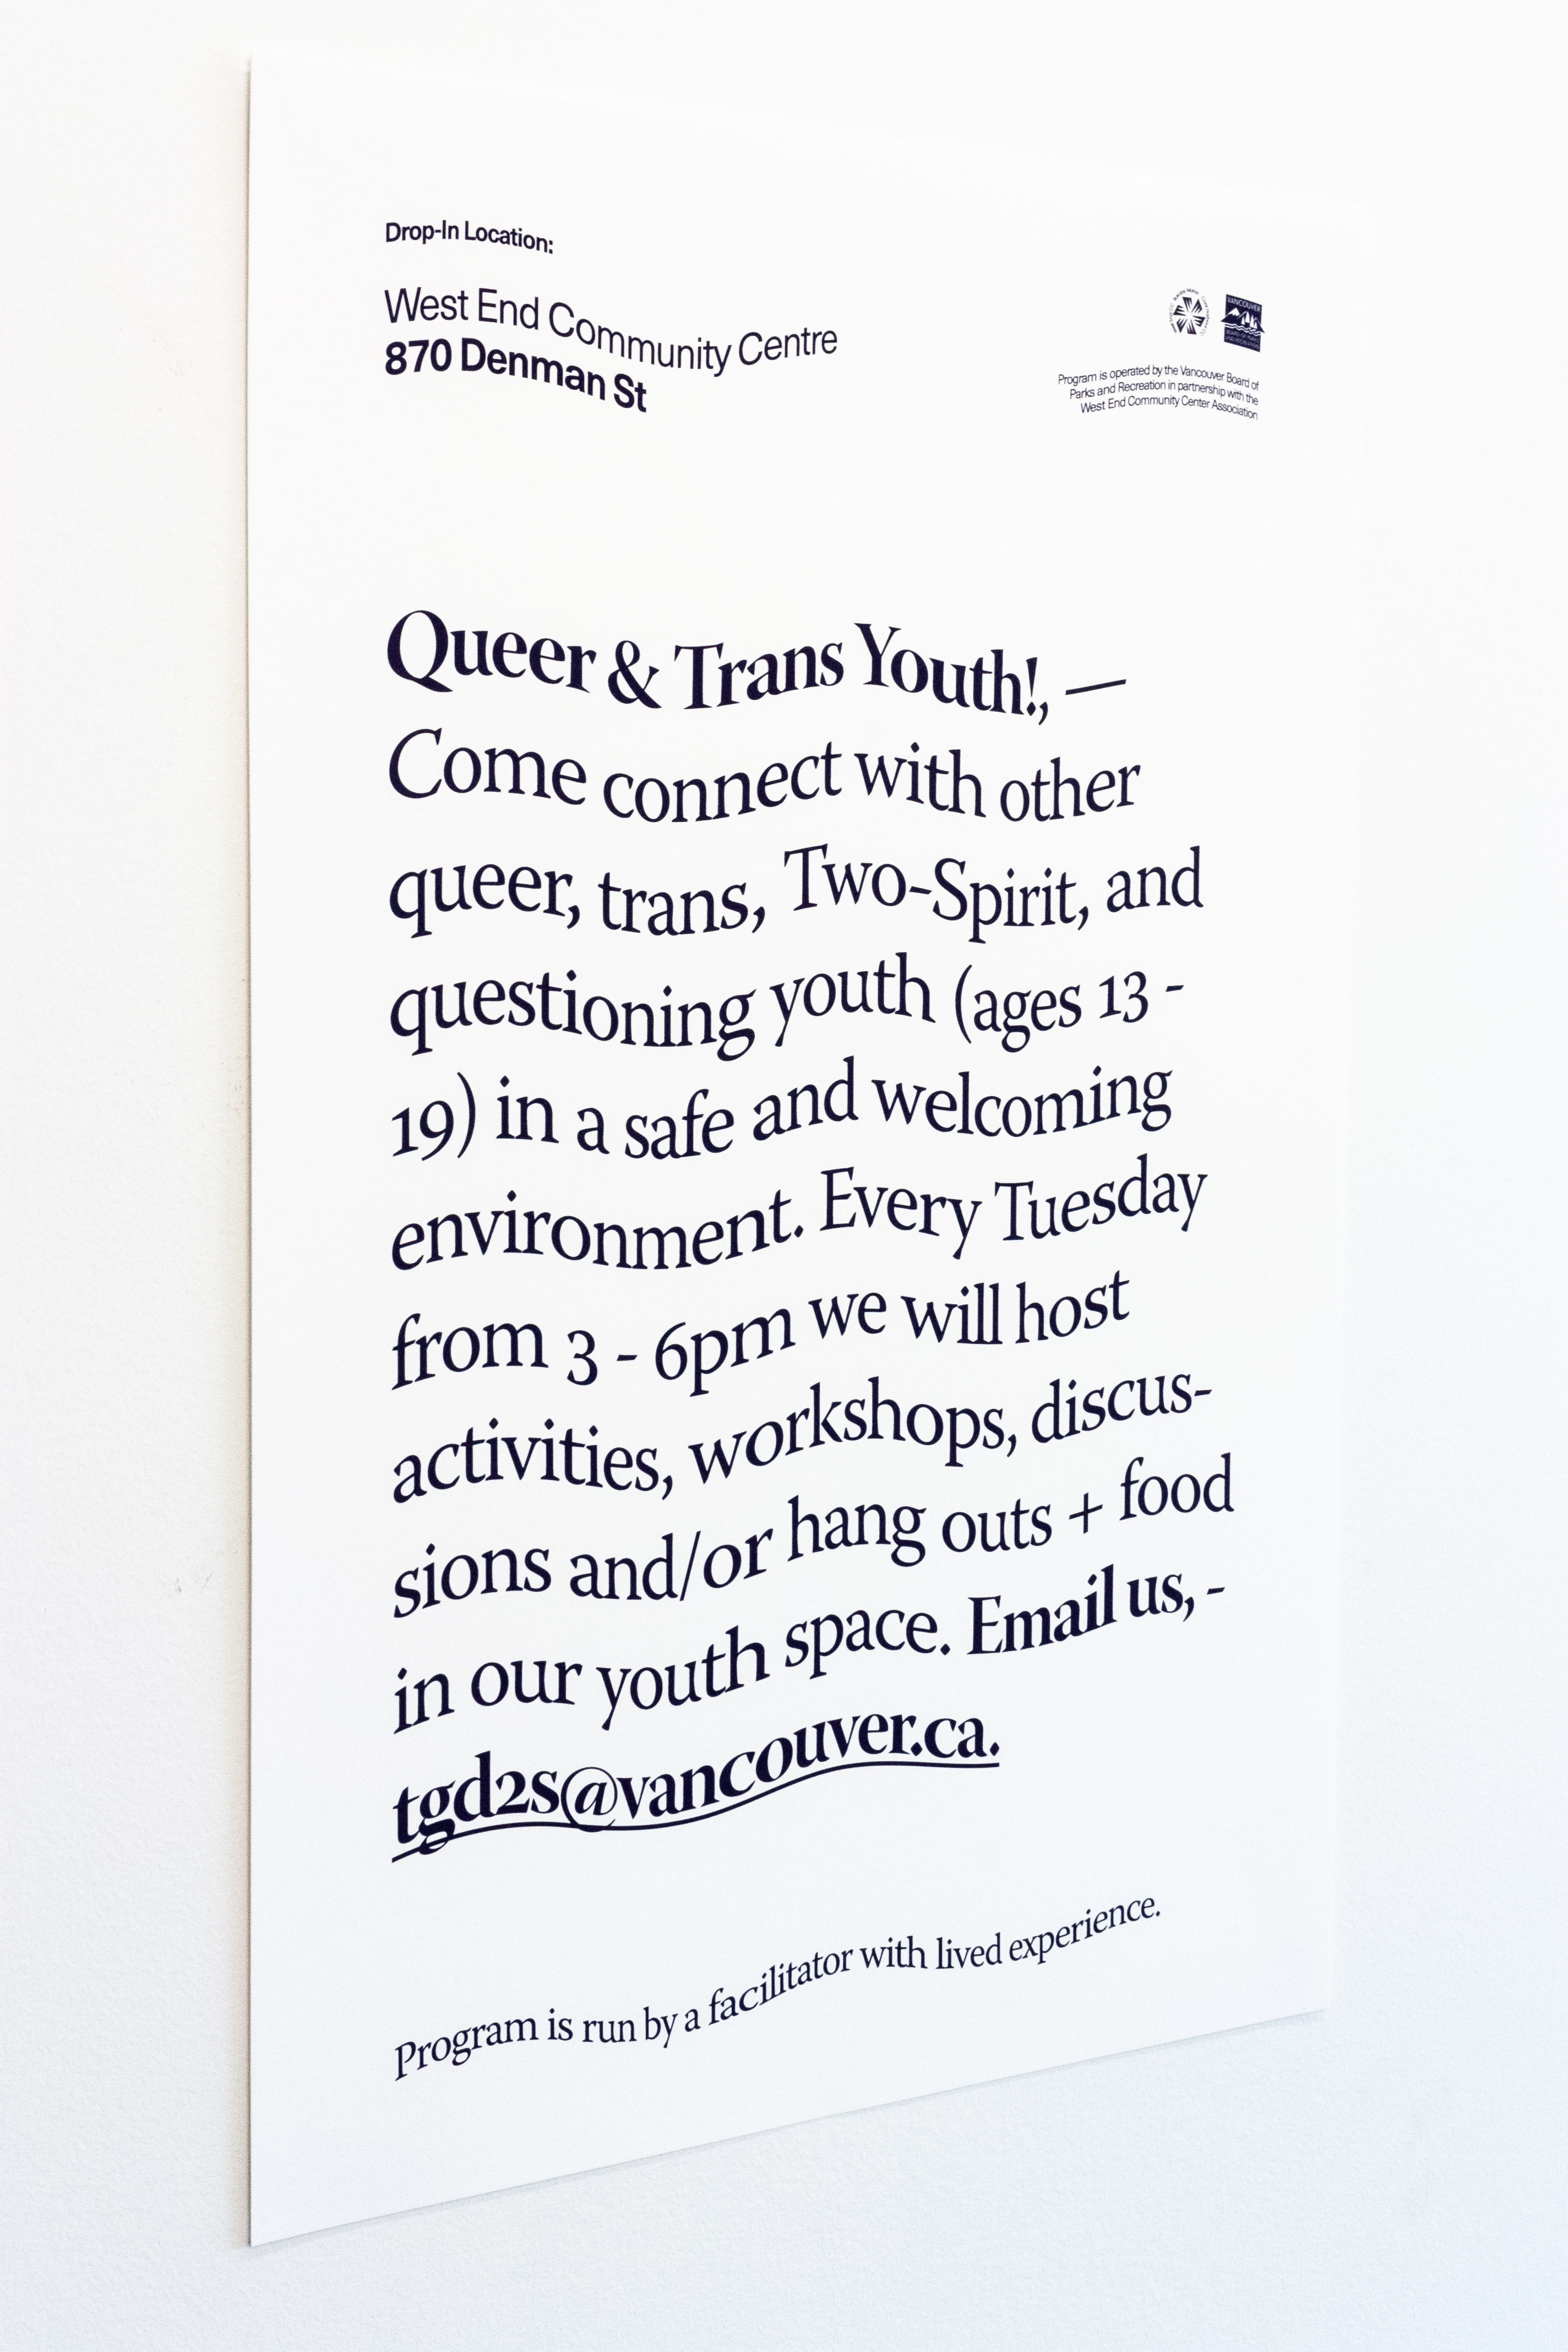 Drop-In Location:
West End Community Centre
870 Denman St
VANCOUVER
Program is operated by the Vancouver Board of
Parks and Recreation in partnership with the
West End Community Center Association
Queer & Trans Youth!, —
Come connect with other
queer, trans, Two-Spirit, and
questioning youth (ages 13 -
19) in a safe and welcoming
environment. Every Tuesday
from 3 - 6pm we will host
activities, workshops, discus-
sions and/or hang outs + food
in our youth space. Email us, -
tgd2s@vancouver.ca.
Program is run by a facilitator with lived experience.